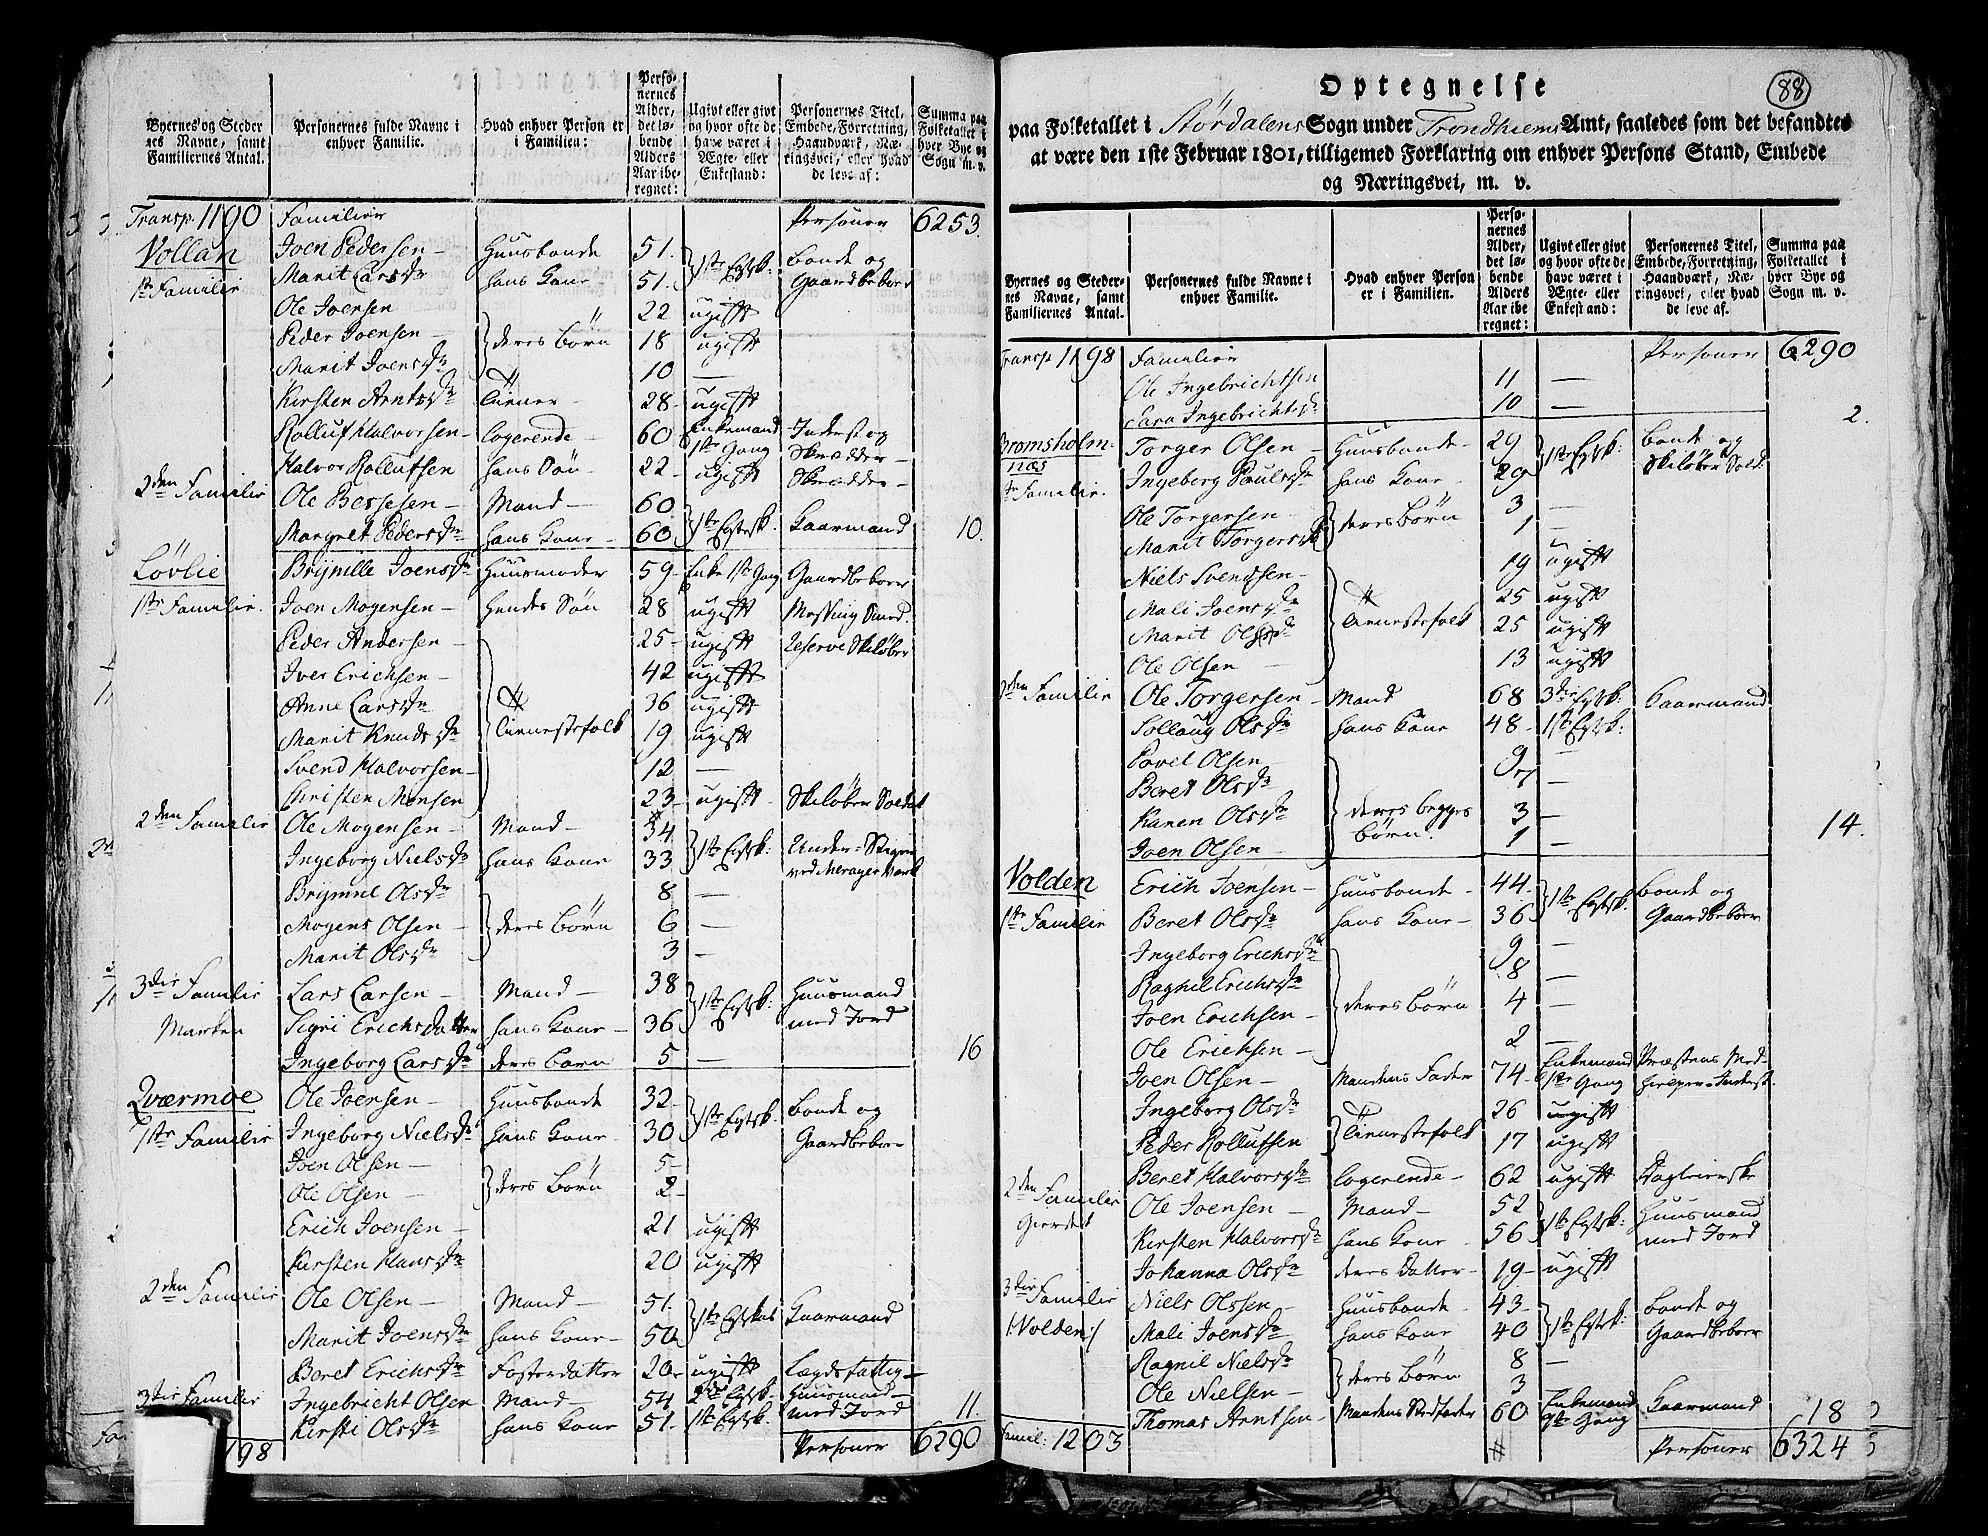 Byernes og Steder
nes Navne, samt
Familiernes Antal.
Personernes fulde Navne i
enhver Familie.
Hvad enhver Person er
i Familien:
Perso-
nernes
Alder,
det lø-
bende
Alders
Aar ibe-
regnet:
Ugivt eller givt
og hvor ofte de
have været i
Ægte- eller
Enkestand:
Personernes Titel,
Embede, Forretning,
Haandværk, Næ-
ringsvei, eller hvad
de leve af:
Summa paa
Folketallet i
hver Bye og
Sogn m. v.
Transp. 1190 Familier Personer 6253.
Vollan Joen Pedersen Huusbonde 51. 1ste Egtsk: Bonde og
1ste Familie Marit Larsdr hans Kone 51. Gaardbeboer
Ole Joensen 22 ugift
Peder Joensen deres Børn 18 ugift
Marit Joensdr 10 —
Kirsten Arntsdr Tiener 28 ugift
Rolluf Halvorsen logerende 60 Enkemand 1ste Gang Inderst og Skrædder
Halvor Rollufsen hans Søn 22 ugift Skrædder
2den Familie Ole Bersesen Mand 60 1ste Egtesk. Kaarmand
Margret Pedersdr hans Kone 60 10.
Lövlie Brijnille Joensdr Huusmoder 59 Enke 1ste Gang Gaardbeboer
1ste Familie. Joen Mogensen hendes Søn 28 ugift
Peder Andersen 25 ugift Reserve Skiløber
Iver Erichsen 42 ugift
Anne Larsdr 36 ugift
Marit Knudsdr Tienestefolk 19 ugift
Svend Halvorsen 12 —
Christen Monsen 23 ugift Skiløber Soldat
2den Familie Ole Mogensen Mand 34 1ste Egtsk: Under-Stiger
Ingeborg Nielsdr hans Kone 33 ved Merager Værk
Brijnnel Olsdr 8 —
Mogens Olsen deres Børn 6 —
Marit Olsdr 3 —
3die Familie Lars Larsen Mand 38 1ste Egtsk: Huusmand
Marken Sigri Erichsdatter hans Kone 36 med Jord
Ingeborg Larsdr deres Barn 5 — 16
Qværmoe Ole Joensen Huusbonde 32 1ste Egtsk. Bonde og
1ste Familie Ingeborg Nielsdr hans Kone 30 Gaardbeboer
Joen Olsen 5
Ole Olsen deres Børn 2
Erich Joensen 21 ugift
Kirsten Hansdr 20 ugift
2den Familie Ole Olsen Mand 51. 1ste Egtskab Kaarmand
Marit Joensdr hans Kone 50
Beret Erichsdr Fosterdatter 20 ugift Lægdsfattig
3die Familie Ingebricht Olsen Mand 54 2det Egtsk. Huusmand
Kirsti Olsdr hans Kone 51. 1ste Egtsk. med Jord 11
198 Personer 6290
88
Optegnelse
paa Folketallet i Stördalens Sogn under Trondhiems Amt, saaledes som det befandtes
at være den 1ste Februar 1801, tilligemed Forklaring om enhver Persons Stand, Embede
og Næringsvei, m. v.
Byernes og Steder-
nes Navne, samt
Familiernes Antal.
Personernes fulde Navne i
enhver Familie.
Hvad enhver Person
er i Familien.
Perso-
nernes
Alder,
det lø-
bende
Alders
Aar ibe-
regnet:
Ugivt eller givt
og hvor ofte de
have været i
Ægte- eller
Enkestand:
Personernes Titel,
Embede, Forretning,
Haandværk, Næ-
ringsvei, eller hvad
de leve af.
Summa paa
Folketallet i
hver Bye og
Sogn m. v.
Transp 1198 Familier Personer 6290
Ole Ingebrichtsen 11 —
Sara Ingebrichtsdr 10 — 2.
Bromsholm- Torger Olsen Huusbonde 29 1ste Egtsk: Bonde og
næs Ingeborg Paulsdr hans Kone 29 Skiløber Sold.
1ste Familie. Ole Torgersen deres Børn 3 —
Marit Torgersdr 1 —
Niels Svendsen 19 ugift
Mali Joensdr 25 ugift
Marit Olsdr Tienestefolk 25 ugift
Ole Olsen 13 ugift
2den Familie Ole Torgersen Mand 68 3die Egtsk: Kaarmand
Sollaug Olsdr hans Kone 48 1ste Egtsk:
Povel Olsen 9 —
Beret Olsdr 7 —
Karen Olsdr deres begges 3 —
Joen Olsen Børn. 1 — 14.
Volden Erich Joensen Huusbonde 44 1ste Egtsk. Bonde og
1ste Familie Beret Olsdr hans Kone 36 Gaardbeboer
Ingeborg Erichsdr 9 —
Ragnil Erichsdr 8 —
Joen Erichsen deres Børn 4 —
Ole Erichsen 2 —
Joen Olsen Mandens Fader 74 Enkemand 1ste Gang Præstens Med-hielper Inderst
Ingeborg Olsdr 26 ugift
Peder Rollufsen Tienestefolk 17 ugift
Beret Halvorsdr logerende 62 ugift
2den Familie Ole Joensen Mand 52 1ste Egtsk: Huusmand
Kirsten Halvorsdr hans Kone 56 med Jord
Johanna Olsdr deres Datter 19 ugift
3die Familie Niels Olssen Huusbonde 43 1ste Egtsk: Bonde og
/:Volden:/ Mali Joensdr hans Kone 40 Gaardbeboer
Ragnil Nielsdr 8 —
Ole Nielsen deres Børn 3
Thomas Arntsen Mandens Stedfader 60 Enkemand Gang Kaarmand 18
Famil: 1203 Personer 6324